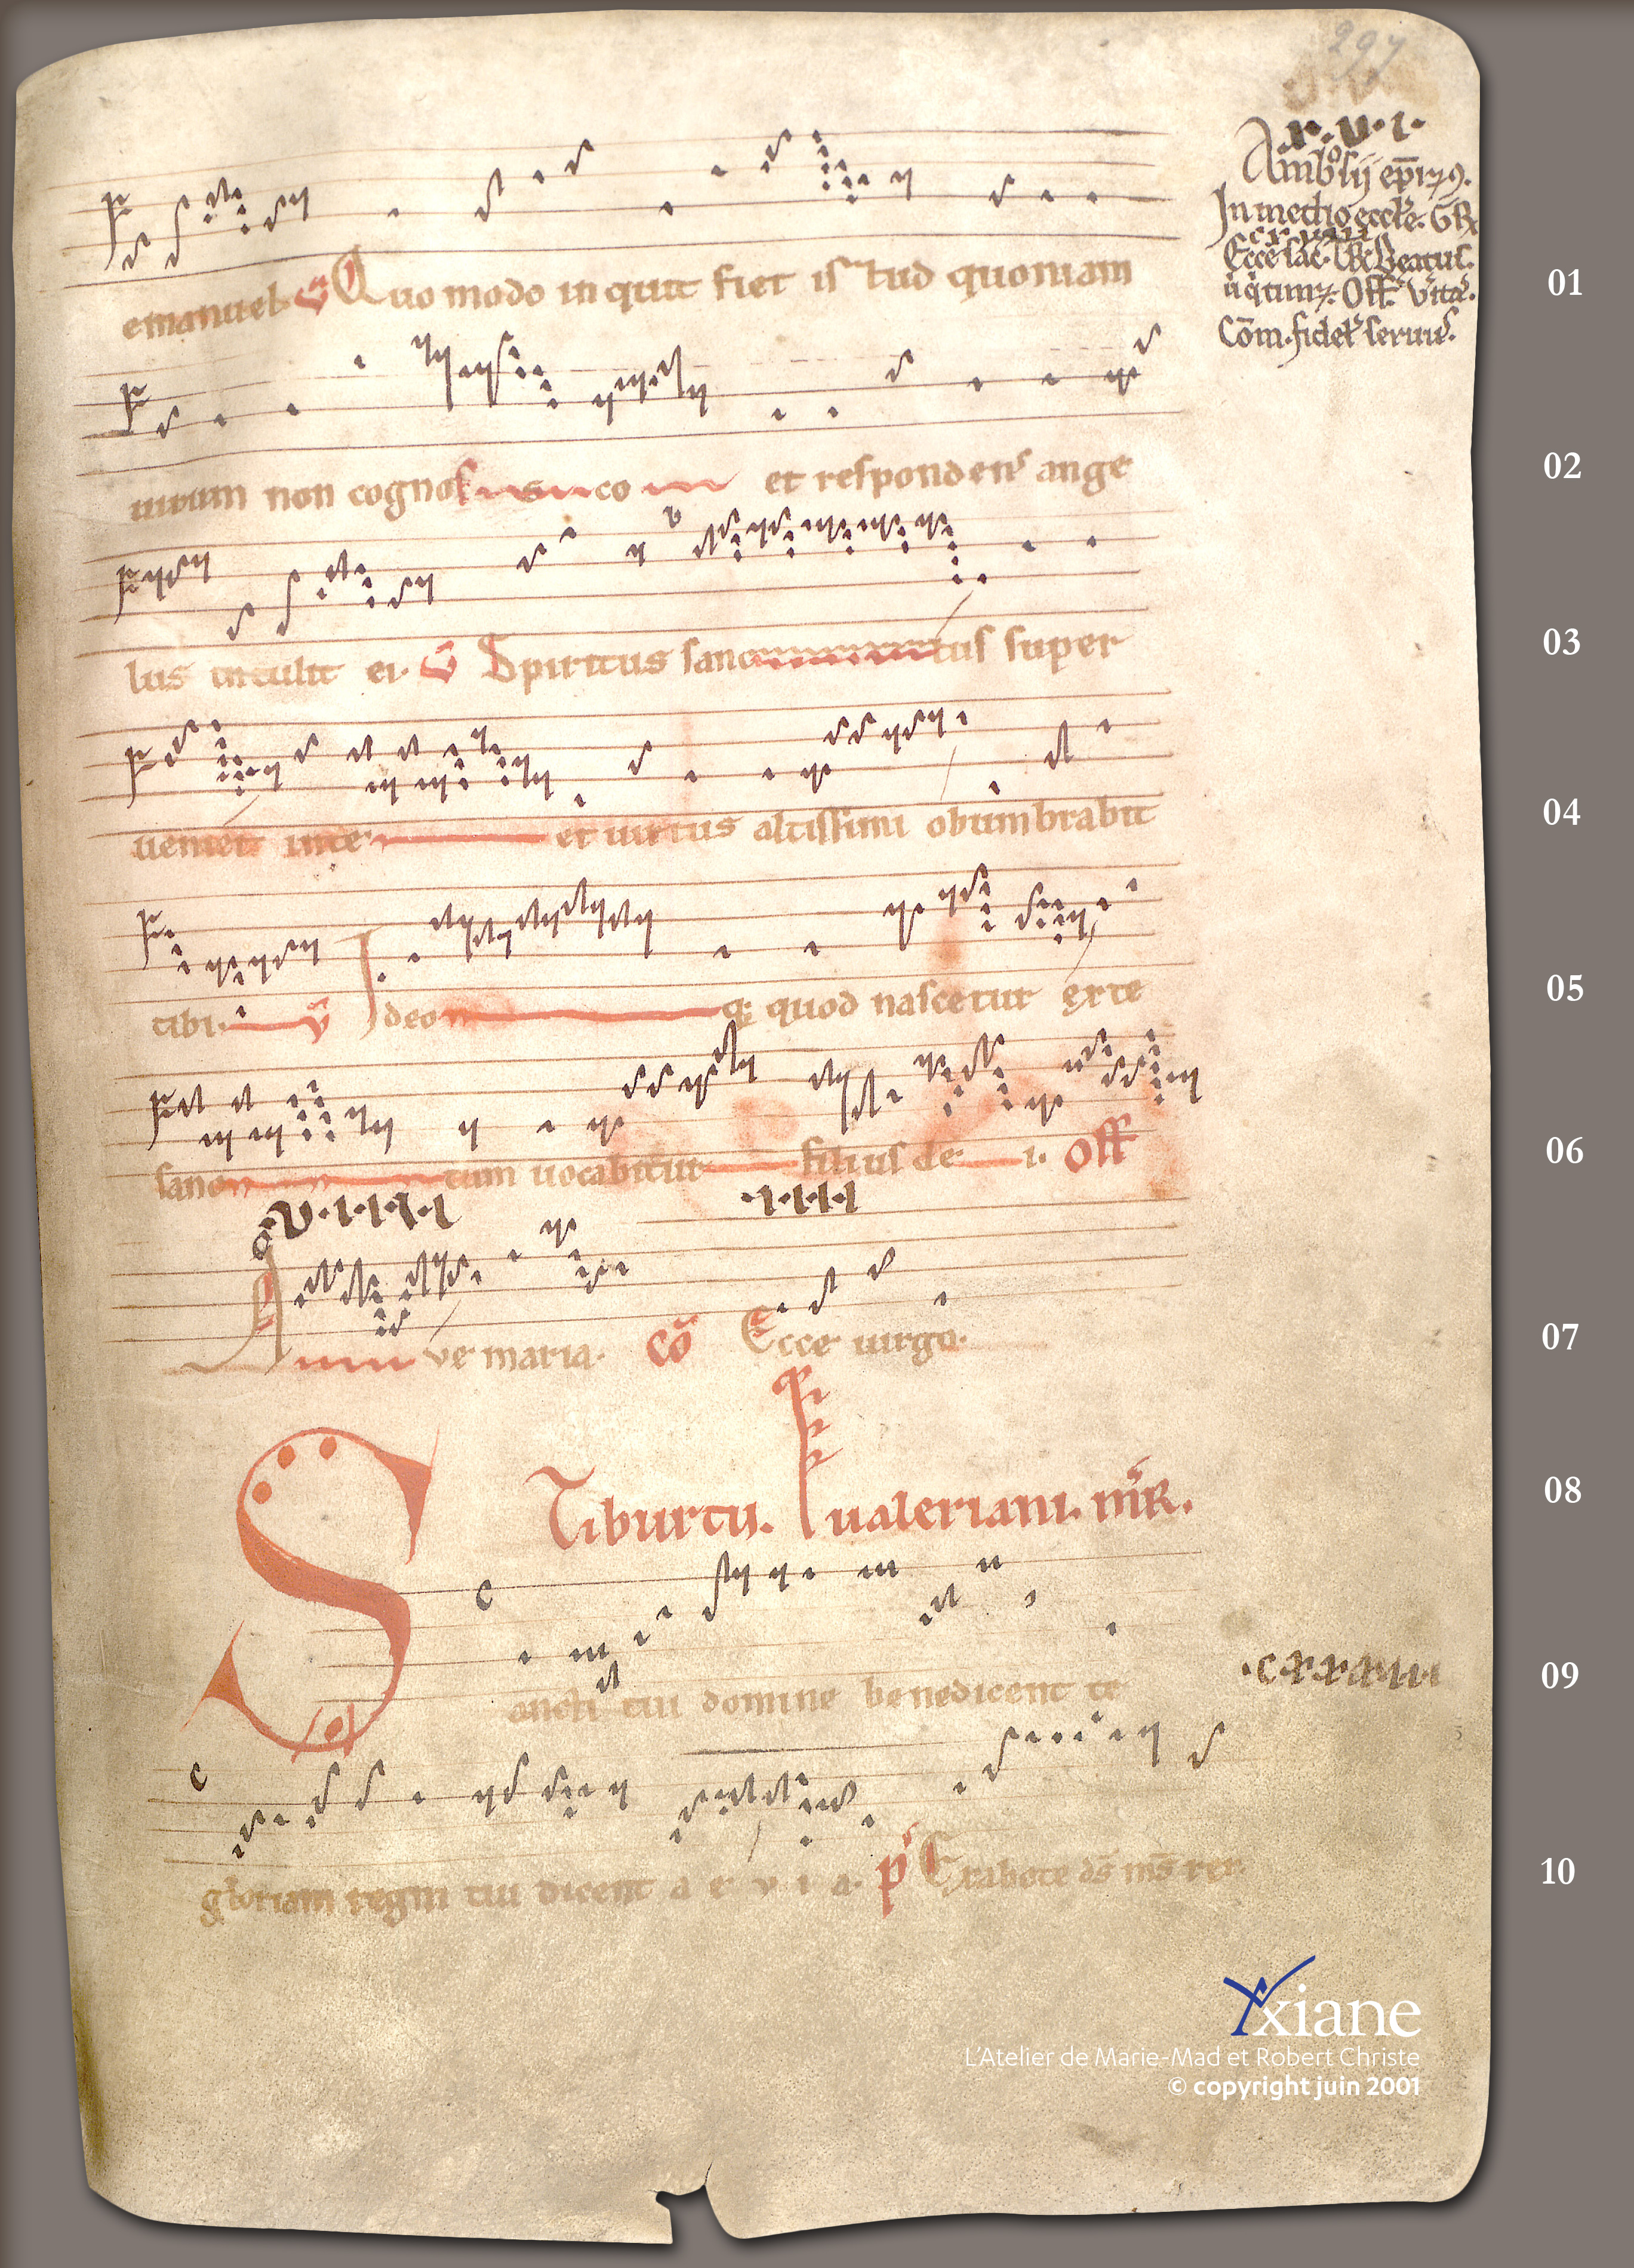 297
.x.v.i.
Ambosij ep̄i
In medio eccl'e. GR
Ecce sac. Beatus.
Off. Vita.
Cōm. fidel' seruus.
emanuel. V Quo modo in quit fiet istud quoniam
01
uirum non cognos co et respondens ange
02
lus intulit ei. V Spiritus sanc tus super
03
ueniet inte et uirtus altissimi obumbrabit
04
tibi. V Ideo q; quod nascetur exte
05
sanc tum uocabitur filius de i. Off
06
.V.I.I.X.I .I.I.I.I
A ve maria. Cō Ecce uirgo.
07
Tiburtii. ualeriani. mR.
08
S ancti tui domine benedicent te
.cxxxuiii
09
gloriam regni tui dicent a e v i a. p Exabo te ds ms rex
10
Yxiane
L'Atelier de Marie-Mad et Robert Christe
© copyright juin 2001